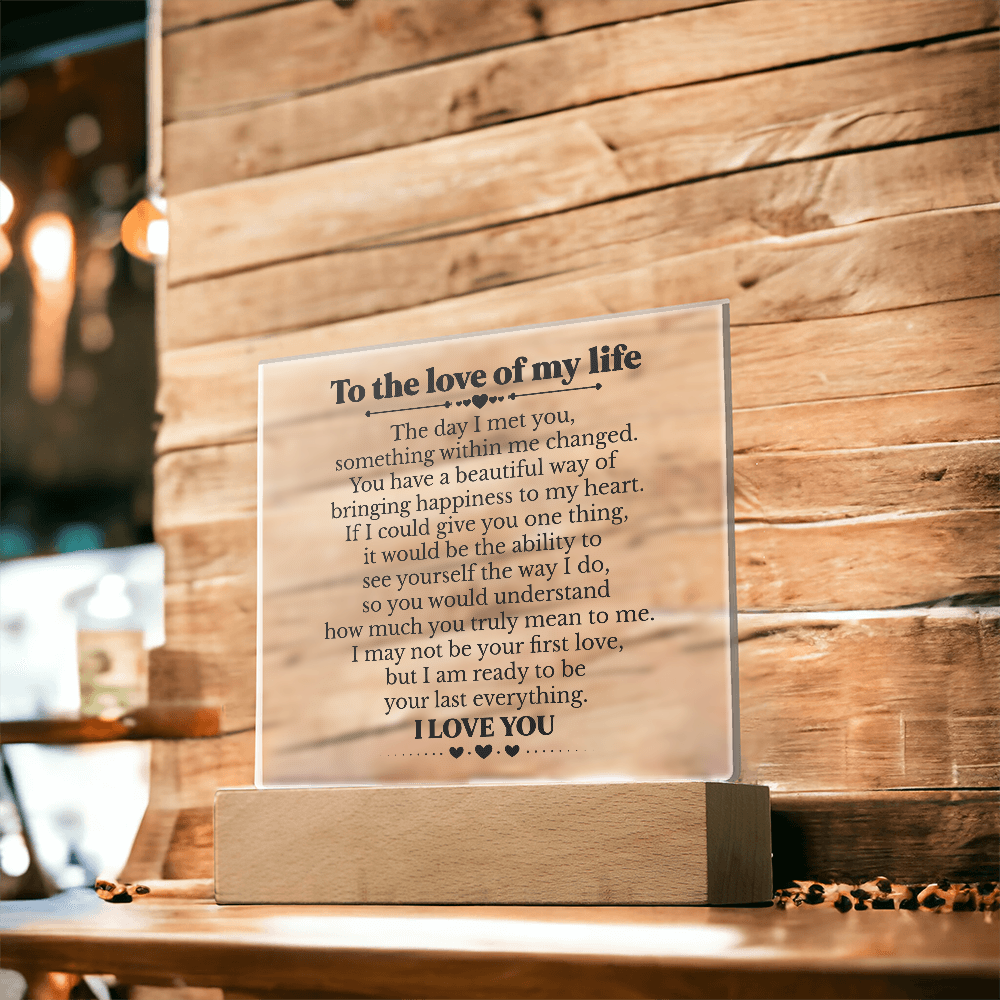 To the love of my life
The day I met you,
something within me changed.
You have a beautiful way of
bringing happiness to my heart.
If I could give you one thing,
it would be the ability to
see yourself the way I do,
so you would understand
how much you truly mean to me.
I may not be your first love,
but I am ready to be
your last everything.
I LOVE YOU